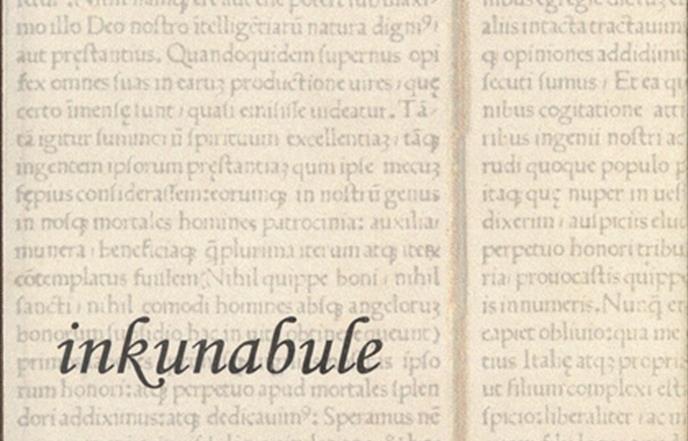 mo illo Deo nostro ītelligētiarū natura dignꝰ
aut pręstantius. Quandoquidem supernus opi
fex omnes suas in earuꝫ productione uires, quę
certo imensę sunt, quasi emisisse uideatur. Tā
tā igitur summeri ñ spirituum excellentiaꝫ, tāqꝫ
ingentem ipsorum pręstantiaꝫ qum ipse mecuꝫ
sępius considerassem: eorumqꝫ in nostrū genus
in nosqꝫ mortales homines patrocinia: auxilia,
munera, beneficiaqꝫ q̄plurima iterum atqꝫ iteꝝ
cōtemplatus fuissem: Nihil quippe boni, nihil
sancti, nihil comodi homines absqꝫ angeloruꝫ
inkunabule
rum honori: atqꝫ perpetuo apud mortales splen
dori addiximus: atqꝫ dedicauimꝰ: Speramus nē
aliis intacta tractauim
qꝫ opiniones addidim
secuti sumus, Et ea qu
nibus cogitatione atti
ribus ingenii nostri ac
rudi quoque populo p
itaqꝫ quę nuper in ues
dixerim, auspiciis eluc
perpetuo honori tribu
ria, prouocastis quippe
is innumeris. Nunq̄ et
capiet obliuio: qua me
tius Italię atqꝫ propri
ut filium complexi esti
spicio: liberaliter, ac m